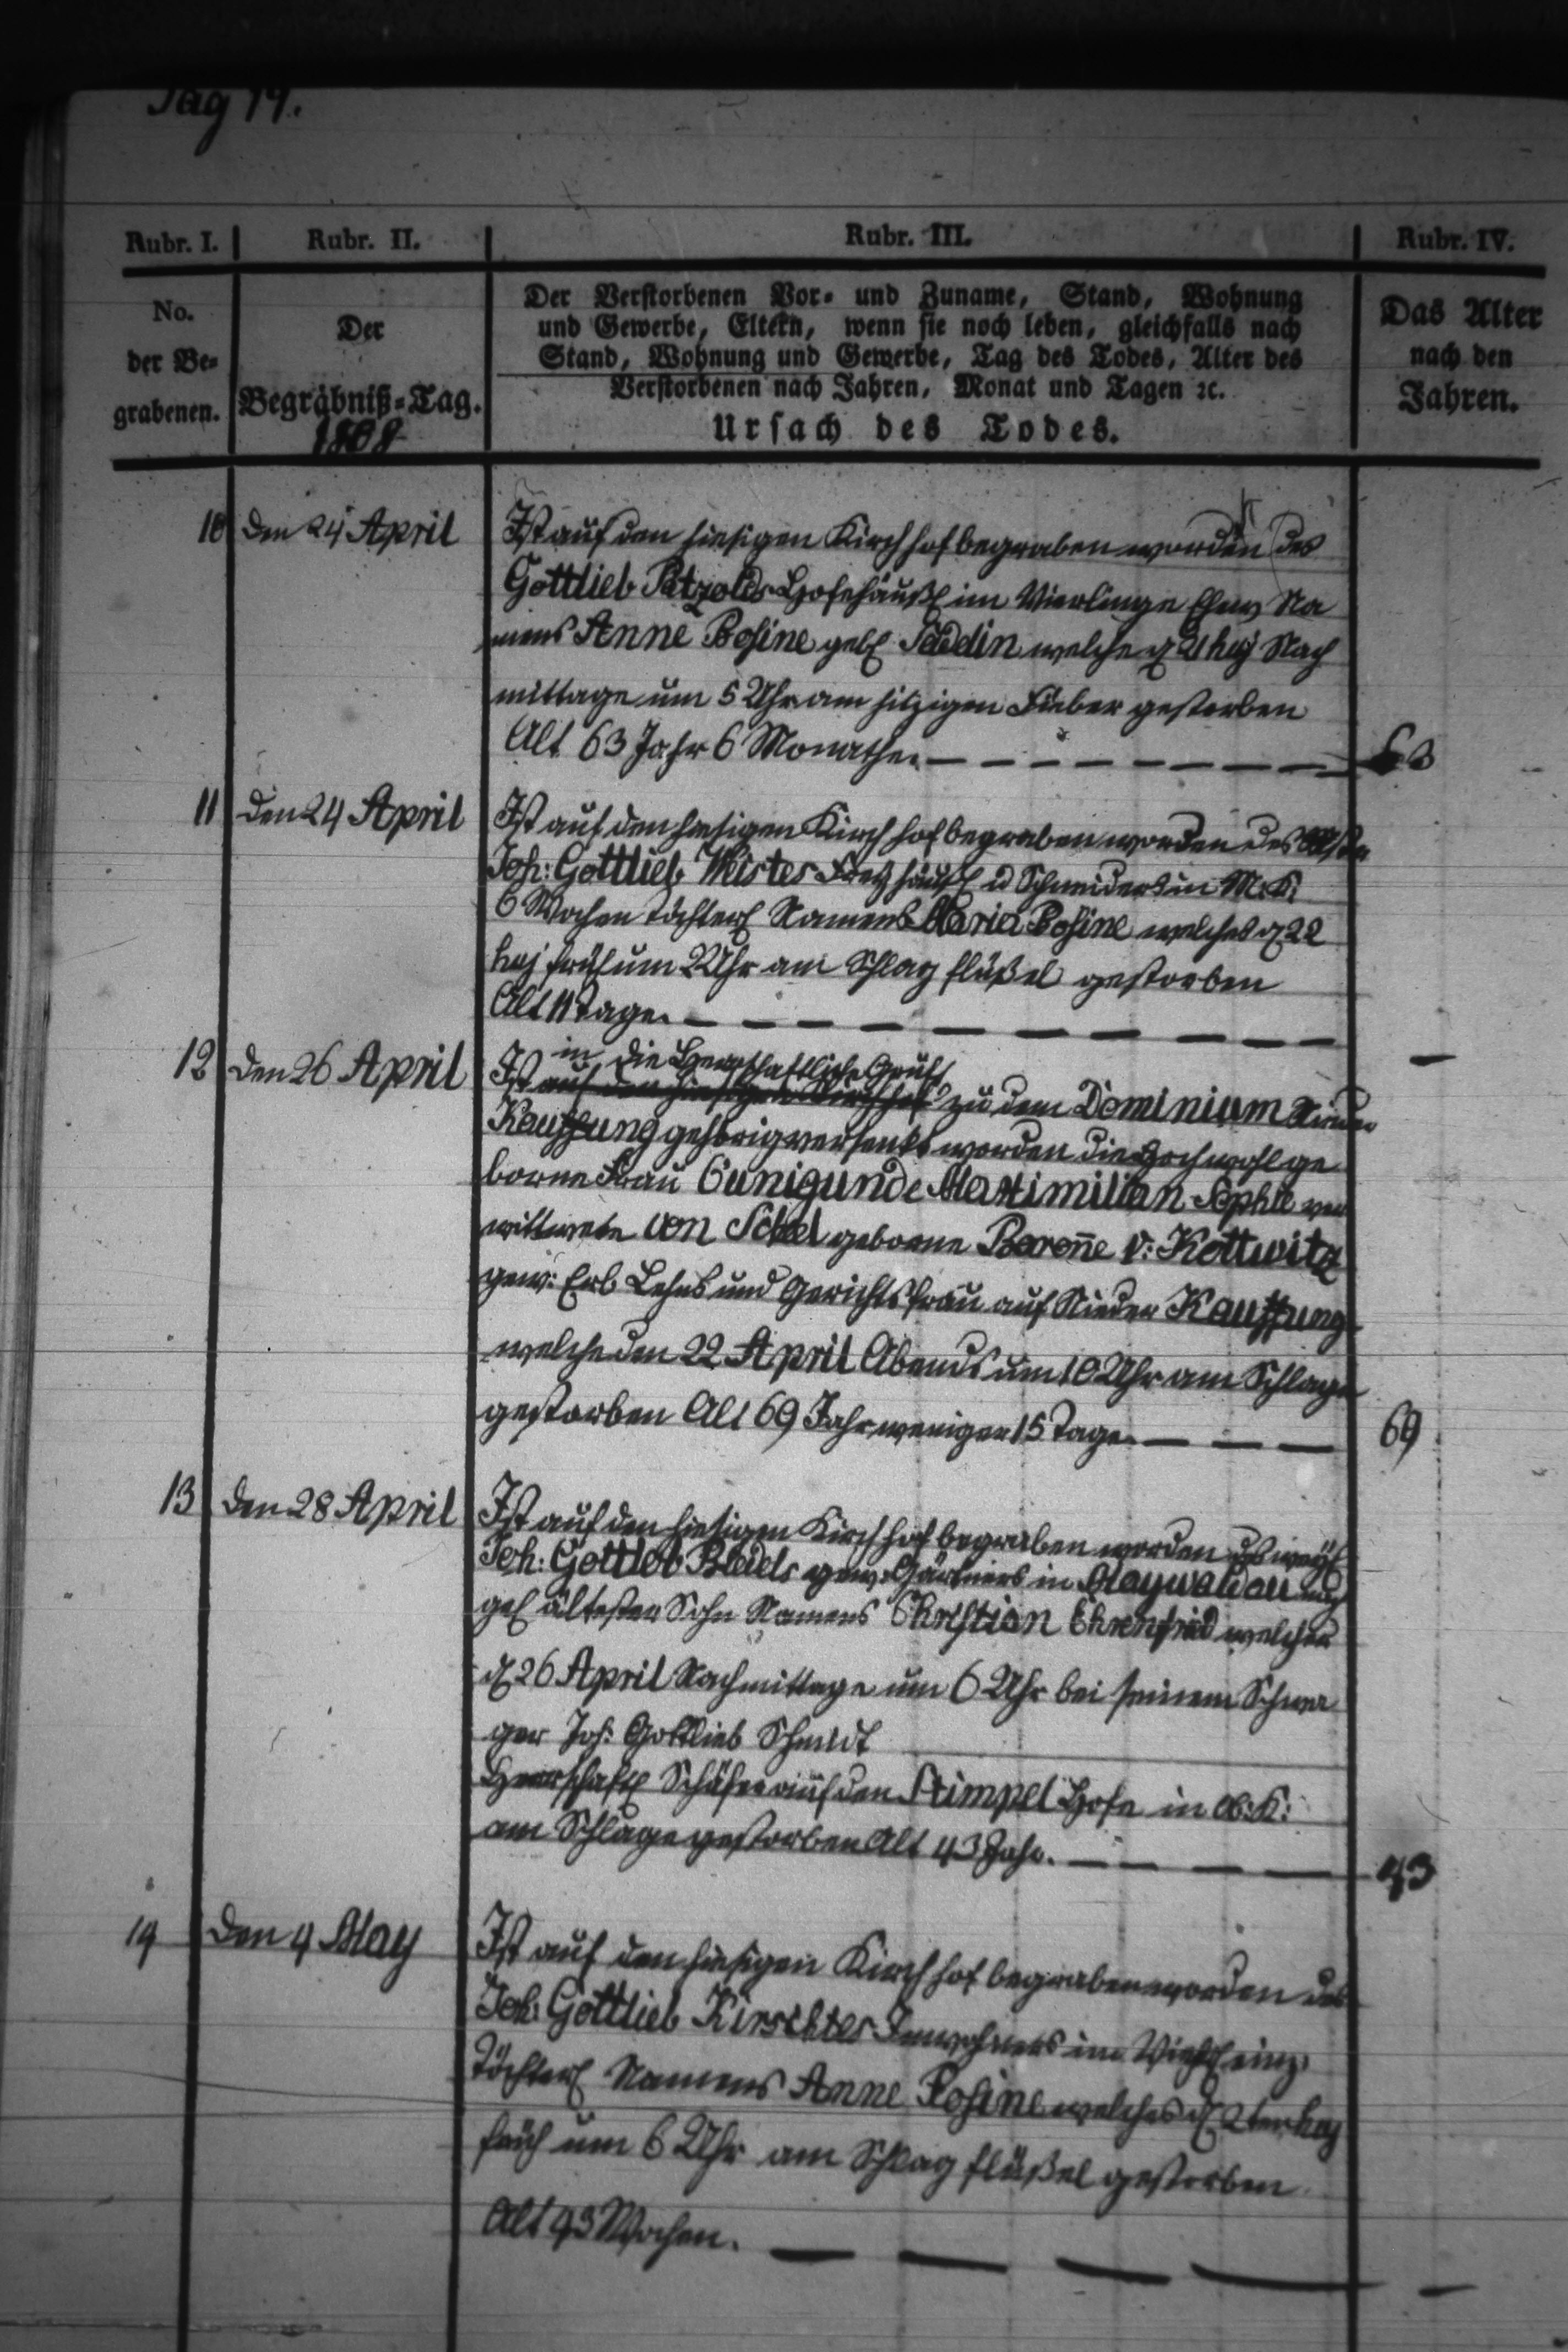 Pag 19.
Rubr. I. Rubr. II. Rubr. III. Rubr. IV.
No. der Be- grabenen.
Der Begräbniß-Tag.
1808
Der Verstorbenen Vor- und Zuname, Stand, Wohnung
und Gewerbe, Eltern, wenn sie noch leben, gleichfalls nach
Stand, Wohnung und Gewerbe, Tag des Todes, Alter des
Verstorbenen nach Jahren, Monat und Tagen ꝛc.
Ursach des Todes.
Das Alter
nach den
Jahren.
10 den 24 April Ist auf den hiesigen Kirchhof begraben worden des
Gottlieb Patzolds Hofehäußl im Vierlinge Ehew Na
mens Anne Rosine geb welche d 21 huj Nach
mittage um 5 Uhr am hitzigen Fieber gestorben
Alt 63 Jahr 6 Monathe. 63
11 den 24 April Ist auf den hiesigen Kirchhof begraben worden des
Joh: Gottlieb häußl u Schneiders in M. K:
6 Wochen Töchterl Namens Maria Rosine welches d 22
huj früh um 2 Uhr am Schlagflüßel gestorben
Alt 11 Tage. —
12 den 26 April Ist in die Herrschaftliche Gruft
auf den hiesigen Kirchhof zu dem Dominium Nieder
Kauffung gehörig versenkt worden die Hochwohlge
borne Frau Cunigunde Maximilian Sophie ver
wittwete von geborne Baronne v: Kottwitz
gew: Erb Lehns und Gerichtsfrau auf Nieder Kauffung
welche den 22 April Abends um 10 Uhr am Schlage
gestorben Alt 69 Jahr weniger 15 Tage. 69
13 den 28 April Ist auf den hiesigen Kirchhof begraben worden des weyl
Joh: Gottlob gew: Gärtners in Maywaldau
gel ältester Sohn Namens Christian Ehrenfried welcher
d 26 April Nachmittage um 6 Uhr bei seinem Schwa
ger Joh: Gottlieb Schmidt
Herrschaftl Schäfer auf den Stimpel Hofe in Ob: K:
am Schlage gestorben Alt 43 Jahr. 43
14 den 4 May Ist auf den hiesigen Kirchhof begraben worden des
Joh: Gottlieb Inwohners im einz:
Töchterl Namens Anne Rosine welches d 2ten huj
früh um 6 Uhr am Schlagflüßel gestorben
Alt 43 Wochen. —